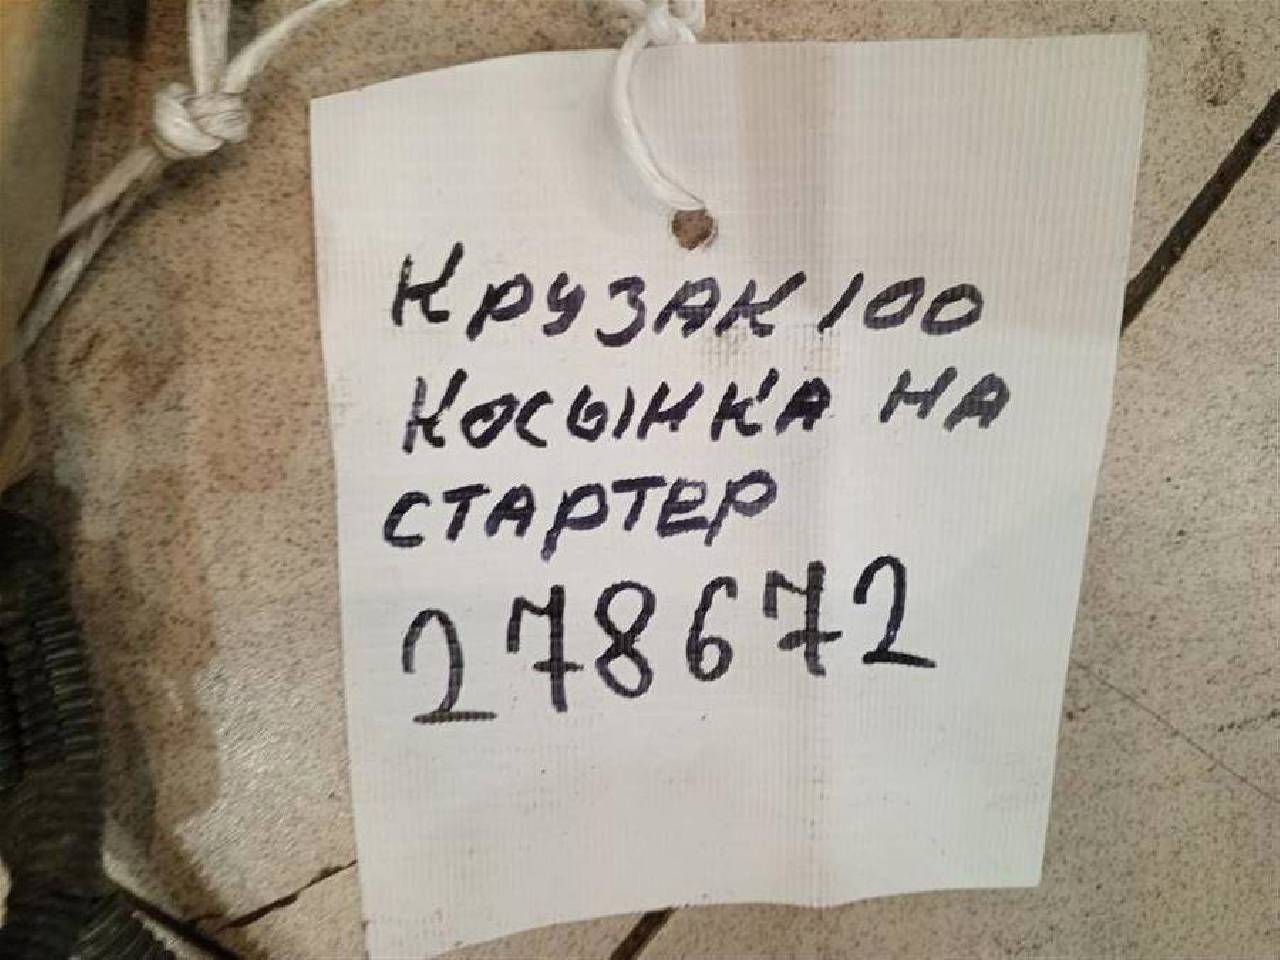 Крузак 100
Косынка на
стартер
278672